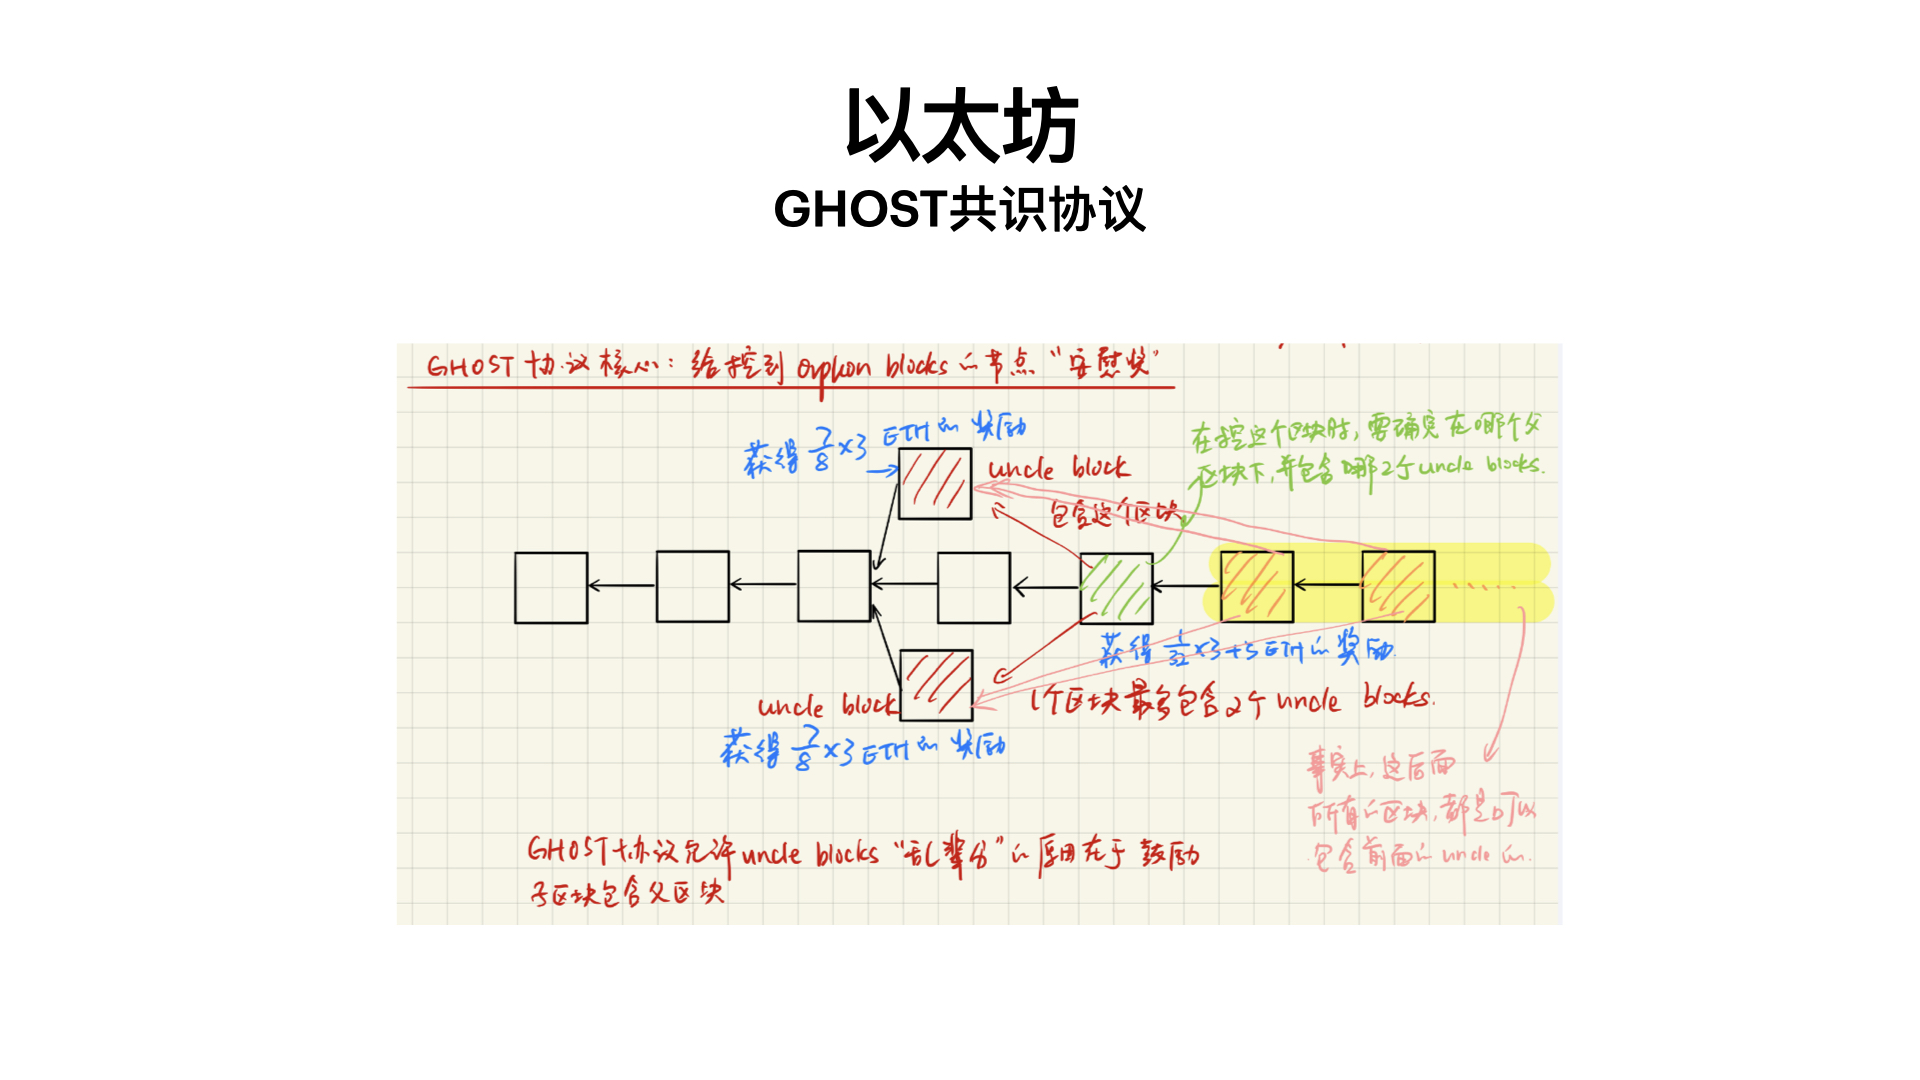 以太坊
GHOST共识协议
GHOST协议核心：给挖到orphan blocks的节点“安慰奖”
获得 7/8 ×3 ETH的奖励
uncle block
在挖这个区块时，需确定在哪个父
区块下，并包含哪2个uncle blocks.
包含这个区块
获得 1/32 ×3+3 ETH的奖励.
uncle block
1个区块最多包含2个 uncle blocks.
获得 7/8 ×3 ETH的奖励
事实上，这后面
所有的区块，都是可以
包含前面的uncle的.
GHOST协议允许 uncle blocks “乱辈分”的原因在于鼓励
子区块包含父区块